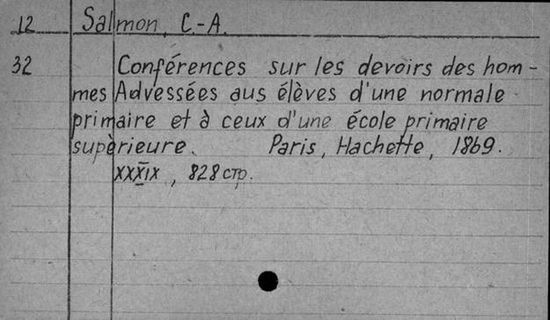 12 Salmon, C.-A.
32 Conférences sur les devoirs des hom-
mes Advessées aus élèves d'une normale
primaire et à ceux d'une école primaire
supèrieure. Paris, Hachette, 1869.
XXXIX, 828 стр.